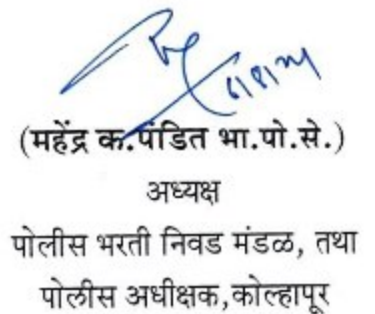 (महेंद्र क.पंडित भा.पो.से.)
अध्यक्ष
पोलीस भरती निवड मंडळ, तथा
पोलीस अधीक्षक,कोल्हापूर